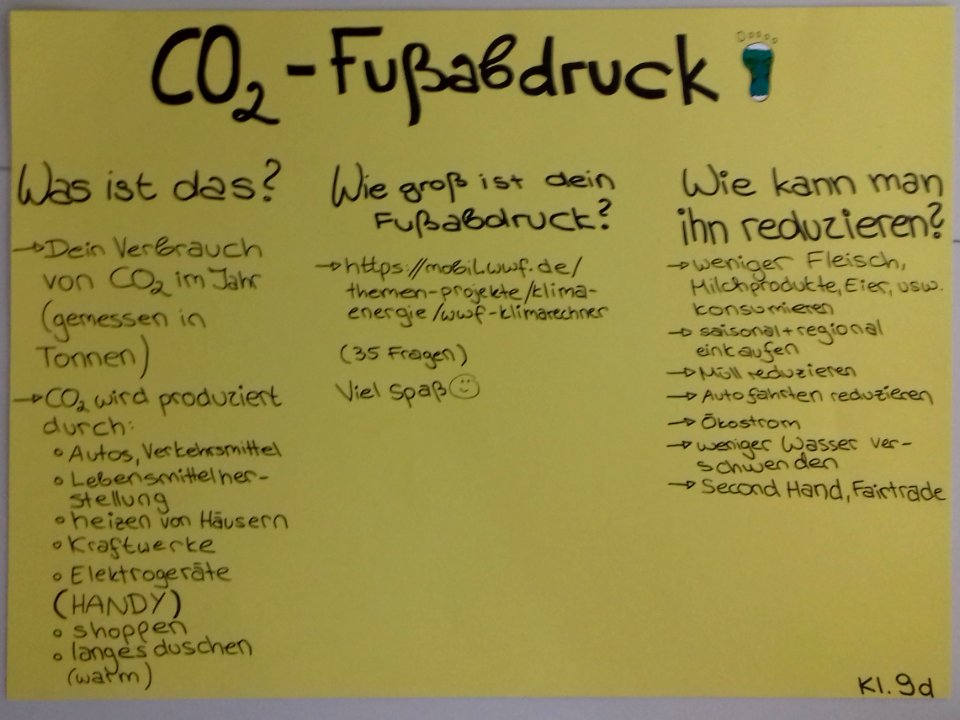 CO₂-Fußabdruck
Was ist das?
→ Dein Verbrauch
von CO₂ im Jahr
(gemessen in
Tonnen)
→ CO₂ wird produziert
durch:
• Autos, Verkehrsmittel
• Lebensmittelher-
stellung
• heizen von Häusern
• Kraftwerke
• Elektrogeräte
(HANDY)
• shoppen
• langes duschen
(warm)
Wie groß ist dein
Fußabdruck?
→ https://mobil.wwf.de/
themen-projekte/klima-
energie/wwf-klimarechner
(35 Fragen)
Viel Spaß ☺
Wie kann man
ihn reduzieren?
→ weniger Fleisch,
Milchprodukte, Eier, usw.
konsumieren
→ saisonal + regional
einkaufen
→ Müll reduzieren
→ Autofahrten reduzieren
→ Ökostrom
→ weniger Wasser ver-
schwenden
→ Second Hand, Fairtrade
Kl. 9d